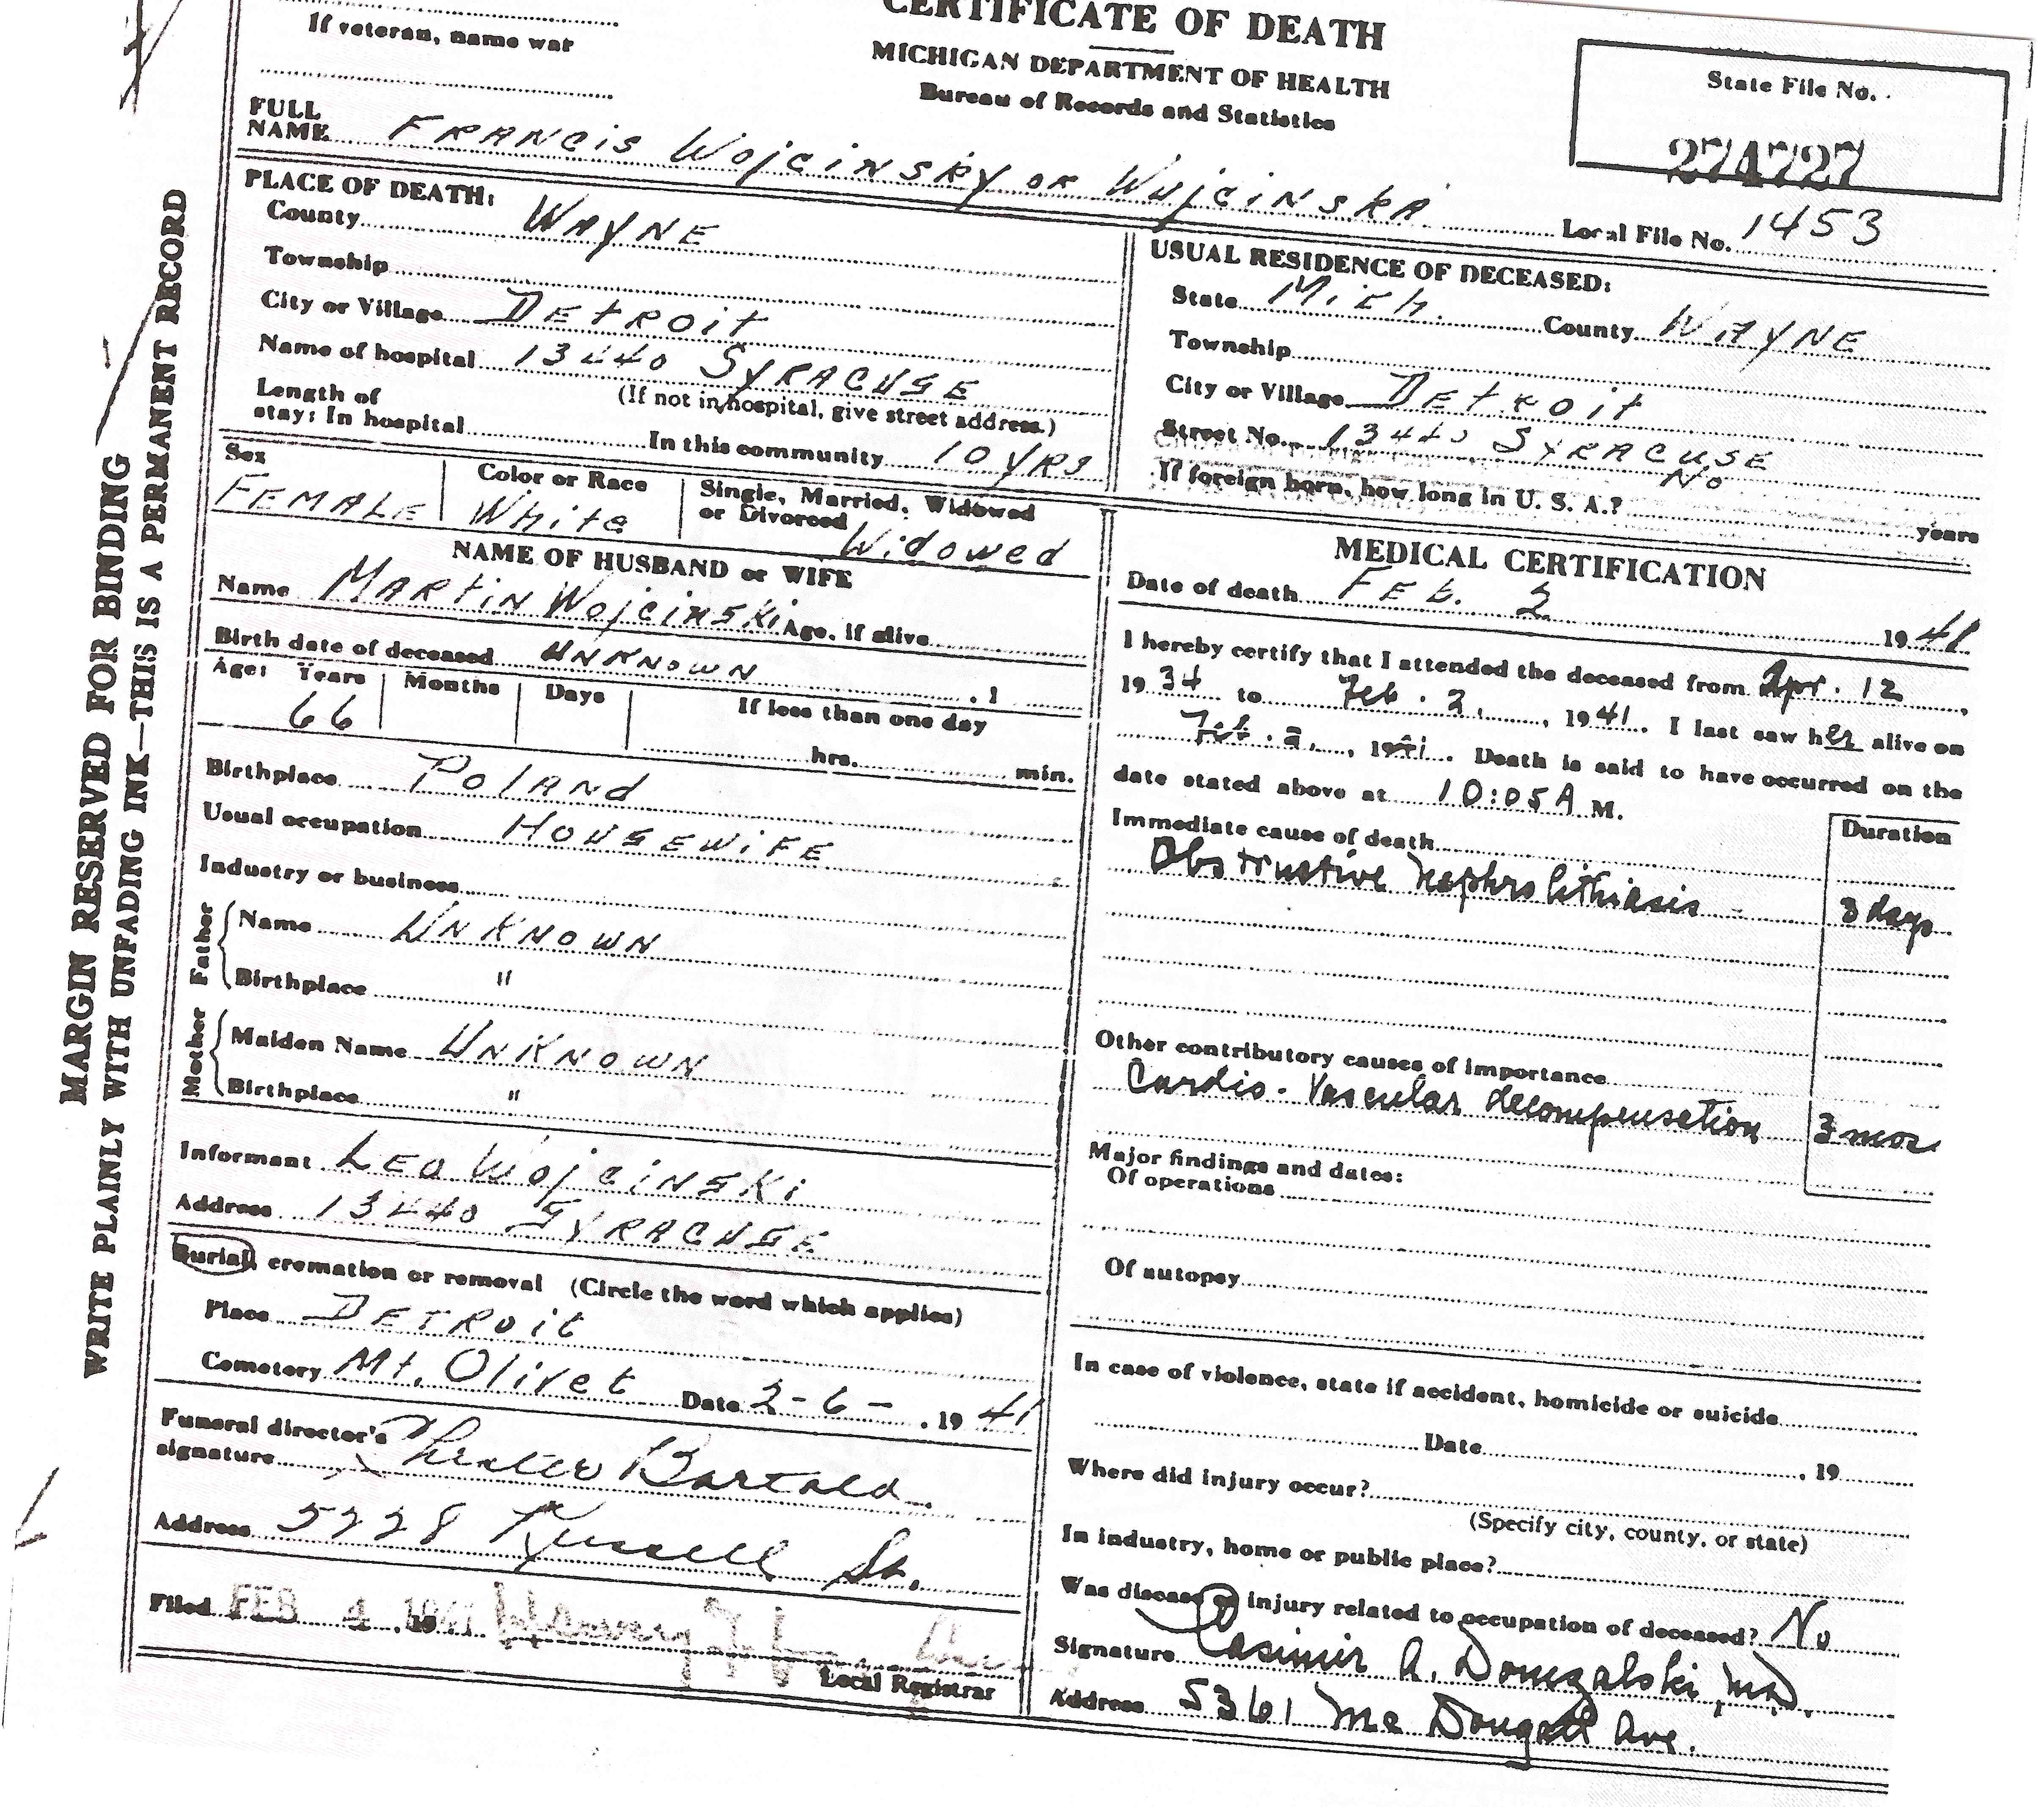 CERTIFICATE OF DEATH
MICHIGAN DEPARTMENT OF HEALTH
Bureau of Records and Statistics
If veteran, name war
State File No.
274727
FULL NAME FRANCIS WOJCINSKY OR WUJCINSKA
Local File No. 1453
PLACE OF DEATH:
County WAYNE
Township
City or Village DETROIT
Name of hospital 13440 SYRACUSE
(If not in hospital, give street address.)
Length of stay: In hospital In this community 10 YRS
USUAL RESIDENCE OF DECEASED:
State Mich. County WAYNE
Township
City or Village DETROIT
Street No. 13440 SYRACUSE
If foreign born, how long in U. S. A.? No years
Sex FEMALE
Color or Race White
Single, Married, Widowed or Divorced Widowed
NAME OF HUSBAND or WIFE
Name MARTIN WOJCINSKI Age, if alive
Birth date of deceased UNKNOWN , 1
Age: Years Months Days If less than one day
66 hrs. min.
Birthplace POLAND
Usual occupation HOUSEWIFE
Industry or business
Father
Name UNKNOWN
Birthplace "
Mother
Maiden Name UNKNOWN
Birthplace "
Informant LEO WOJCINSKI
Address 13440 SYRACUSE
Burial, cremation or removal (Circle the word which applies)
Place DETROIT
Cemetery Mt. Olivet Date 2-6- , 19 41
Funeral director's signature Chester Bartold
Address 5728 Russell St.
Filed FEB 4 1941 Henry F.
Local Registrar
MEDICAL CERTIFICATION
Date of death FEb. 2 19 41
I hereby certify that I attended the deceased from Apr. 12,
19 34 to Feb. 2, , 19 41. I last saw her alive on
Feb. 2, , 1941. Death is said to have occurred on the
date stated above at 10:05 A M.
Immediate cause of death Duration
Obstructive nephrolithiasis - 3 days
Other contributory causes of importance
Cardio-Vascular decompensation 3 mos
Major findings and dates:
Of operations
Of autopsy
In case of violence, state if accident, homicide or suicide
Date , 19
Where did injury occur?
(Specify city, county, or state)
In industry, home or public place?
Was disease or injury related to occupation of deceased? No
Signature Casimir A. Domzalski, M.D.
Address 5361 Mc Dougall Ave.
MARGIN RESERVED FOR BINDING
WRITE PLAINLY WITH UNFADING INK—THIS IS A PERMANENT RECORD